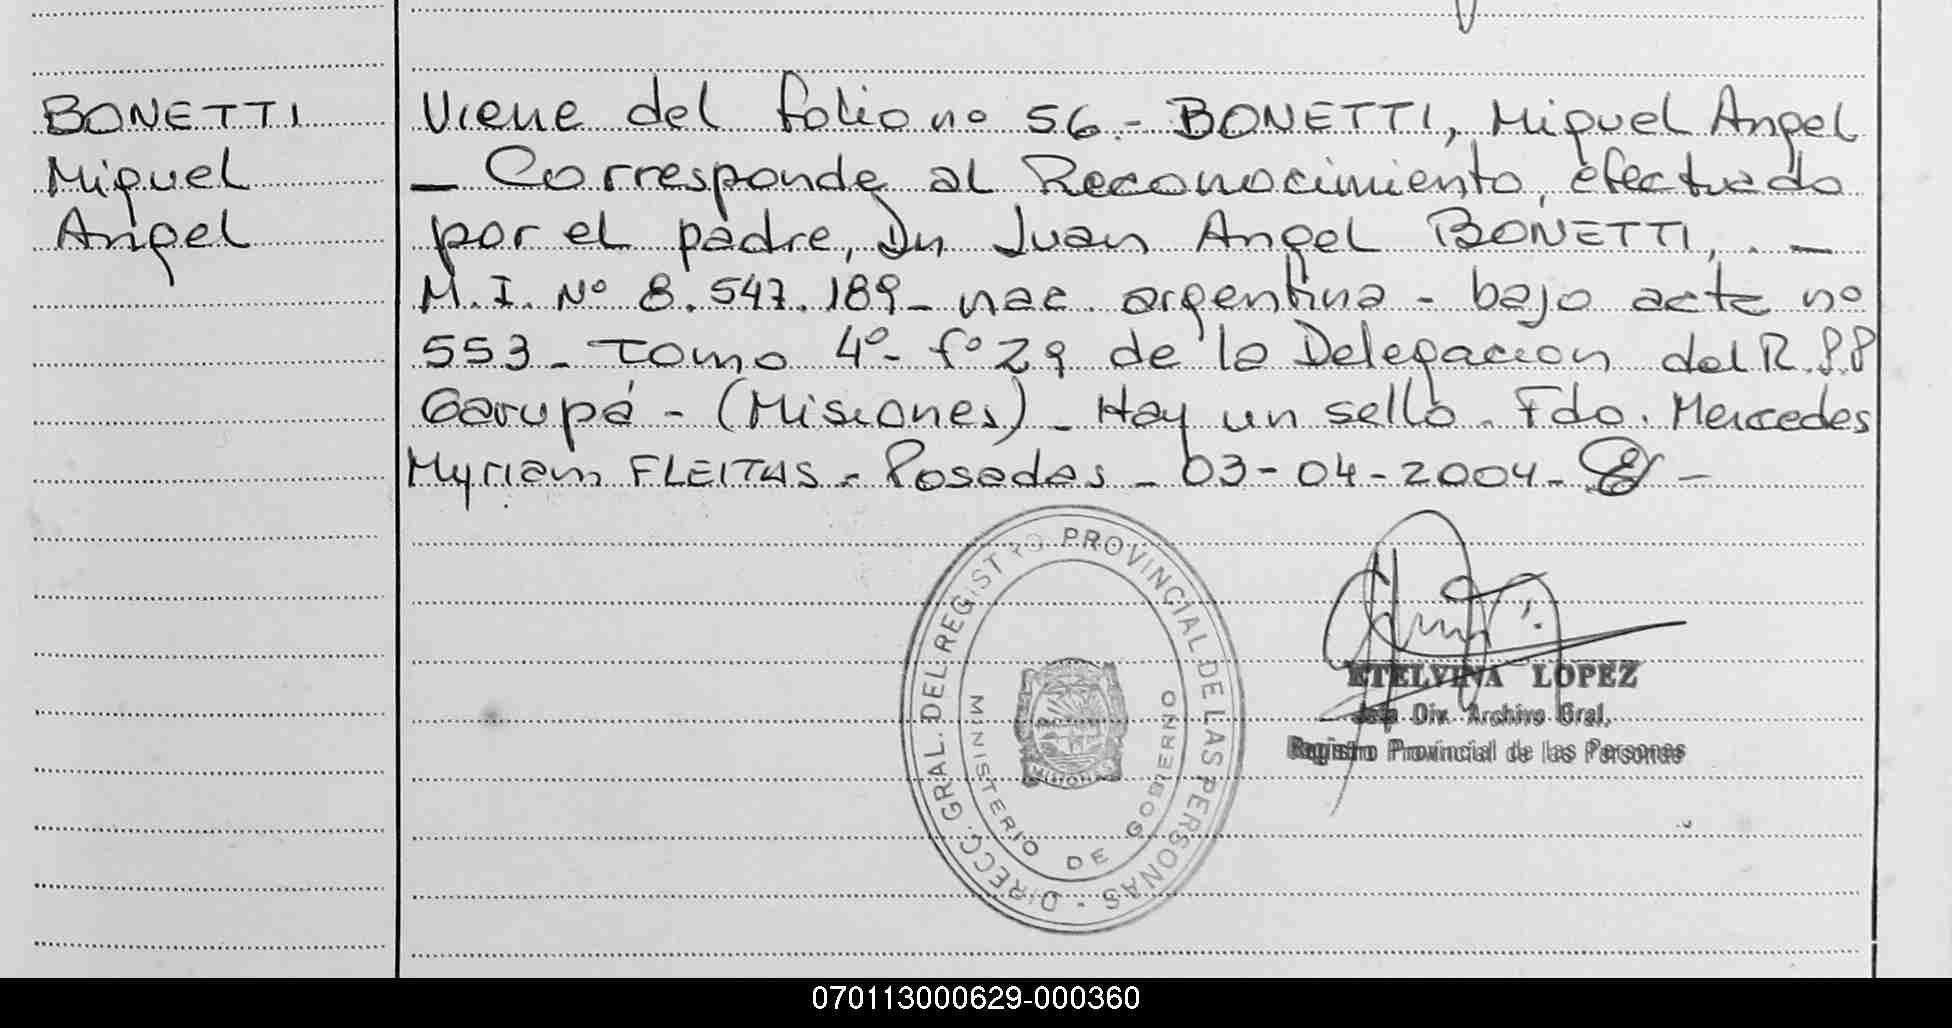 BONETTI
Miguel
Angel
Viene del folio nº 56.- BONETTI, Miguel Angel
_ Corresponde al Reconocimiento efectuado
por el padre, Dn Juan Angel BONETTI, . _
M.I. Nº 8.547.189_ nac. argentina - bajo acta nº
553_ Tomo 4º- fº 29 de la Delegacion del R.P.P
Garupá - (Misiones)_ Hay un sello. Fdo. Mercedes
Myriam FLEITAS - Posadas _ 03-04-2004-
DIRECC. GRAL. DEL REGISTRO PROVINCIAL DE LAS PERSONAS -
MINISTERIO DE GOBIERNO
MISIONES
ETELVINA LOPEZ
Jefa Div. Archivo Gral.
Registro Provincial de las Personas
070113000629-000360